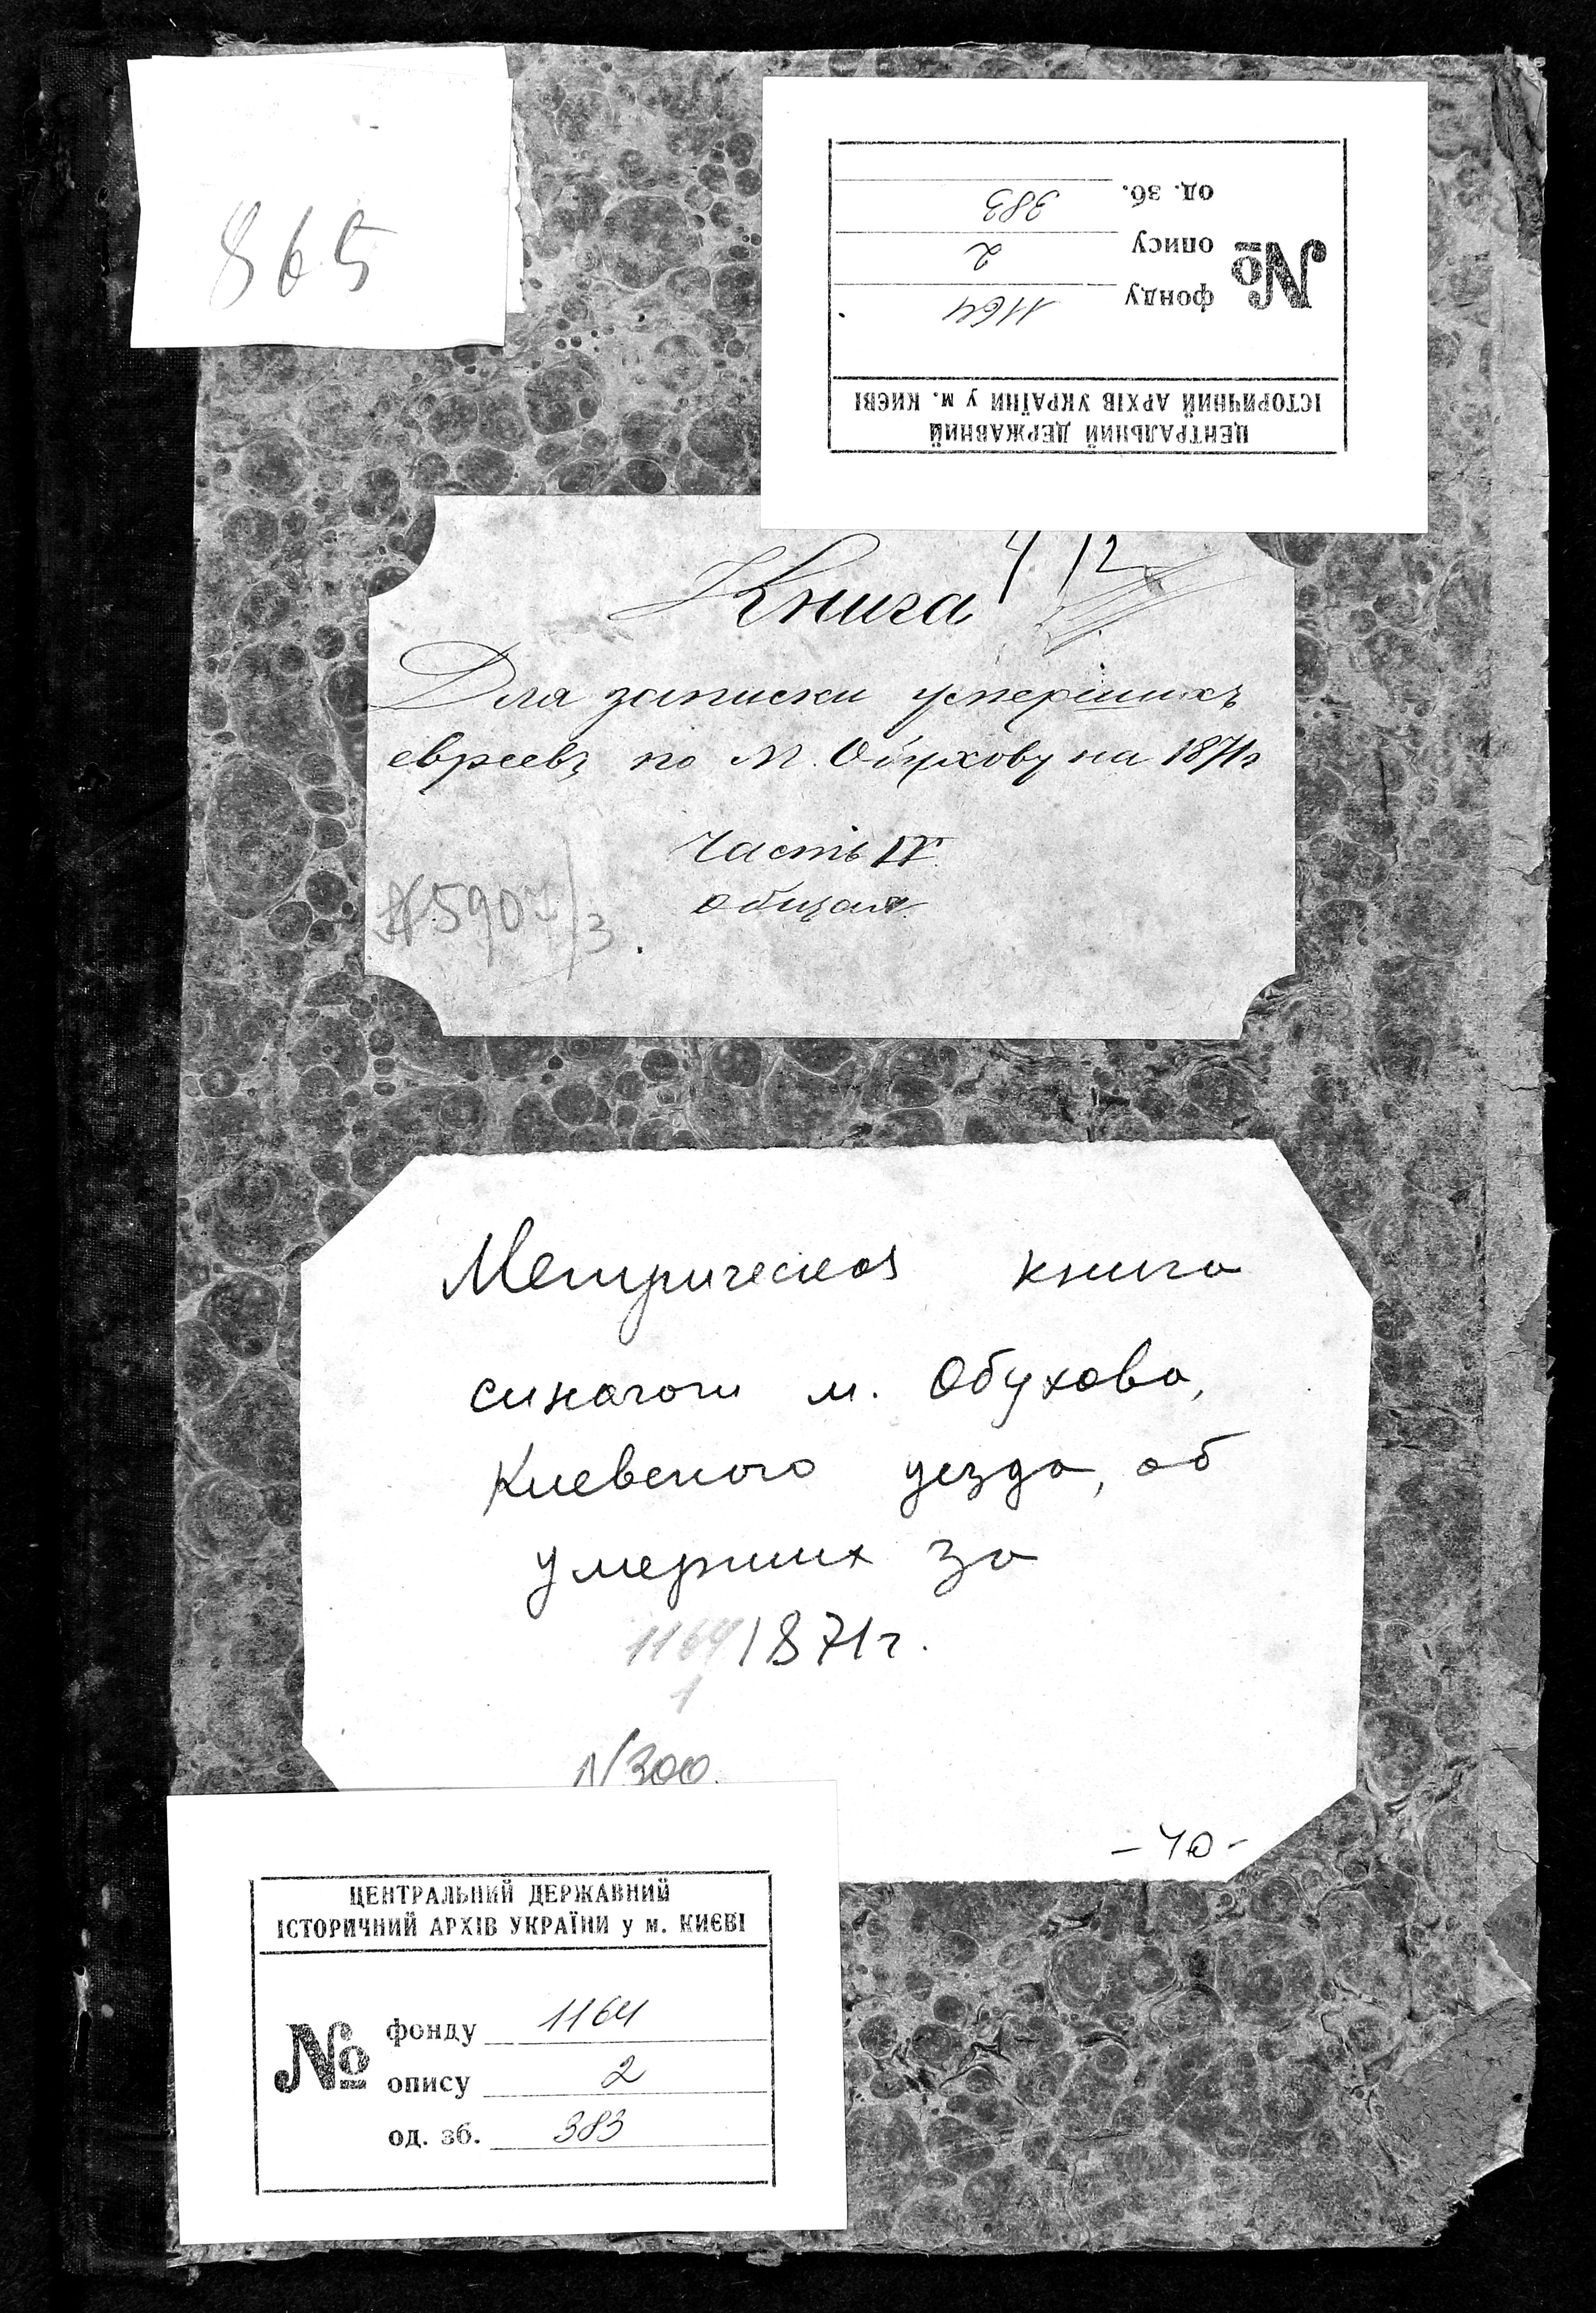 865
ЦЕНТРАЛЬНИЙ ДЕРЖАВНИЙ
ІСТОРИЧНИЙ АРХІВ УКРАЇНИ у м. КИЄВІ
№
фонду 1164
опису 2
од. зб. 383
Книга
Для записки умершихъ
евреевъ по М. Обухову на 1871г
Часть IV.
общая.
5907/3.
Метрическая книга
синагоги м. Обухова,
Киевского уезда, об
умерших за
1164 1871г.
1
N300.
-40-
ЦЕНТРАЛЬНИЙ ДЕРЖАВНИЙ
ІСТОРИЧНИЙ АРХІВ УКРАЇНИ у м. КИЄВІ
№
фонду 1164
опису 2
од. зб. 383